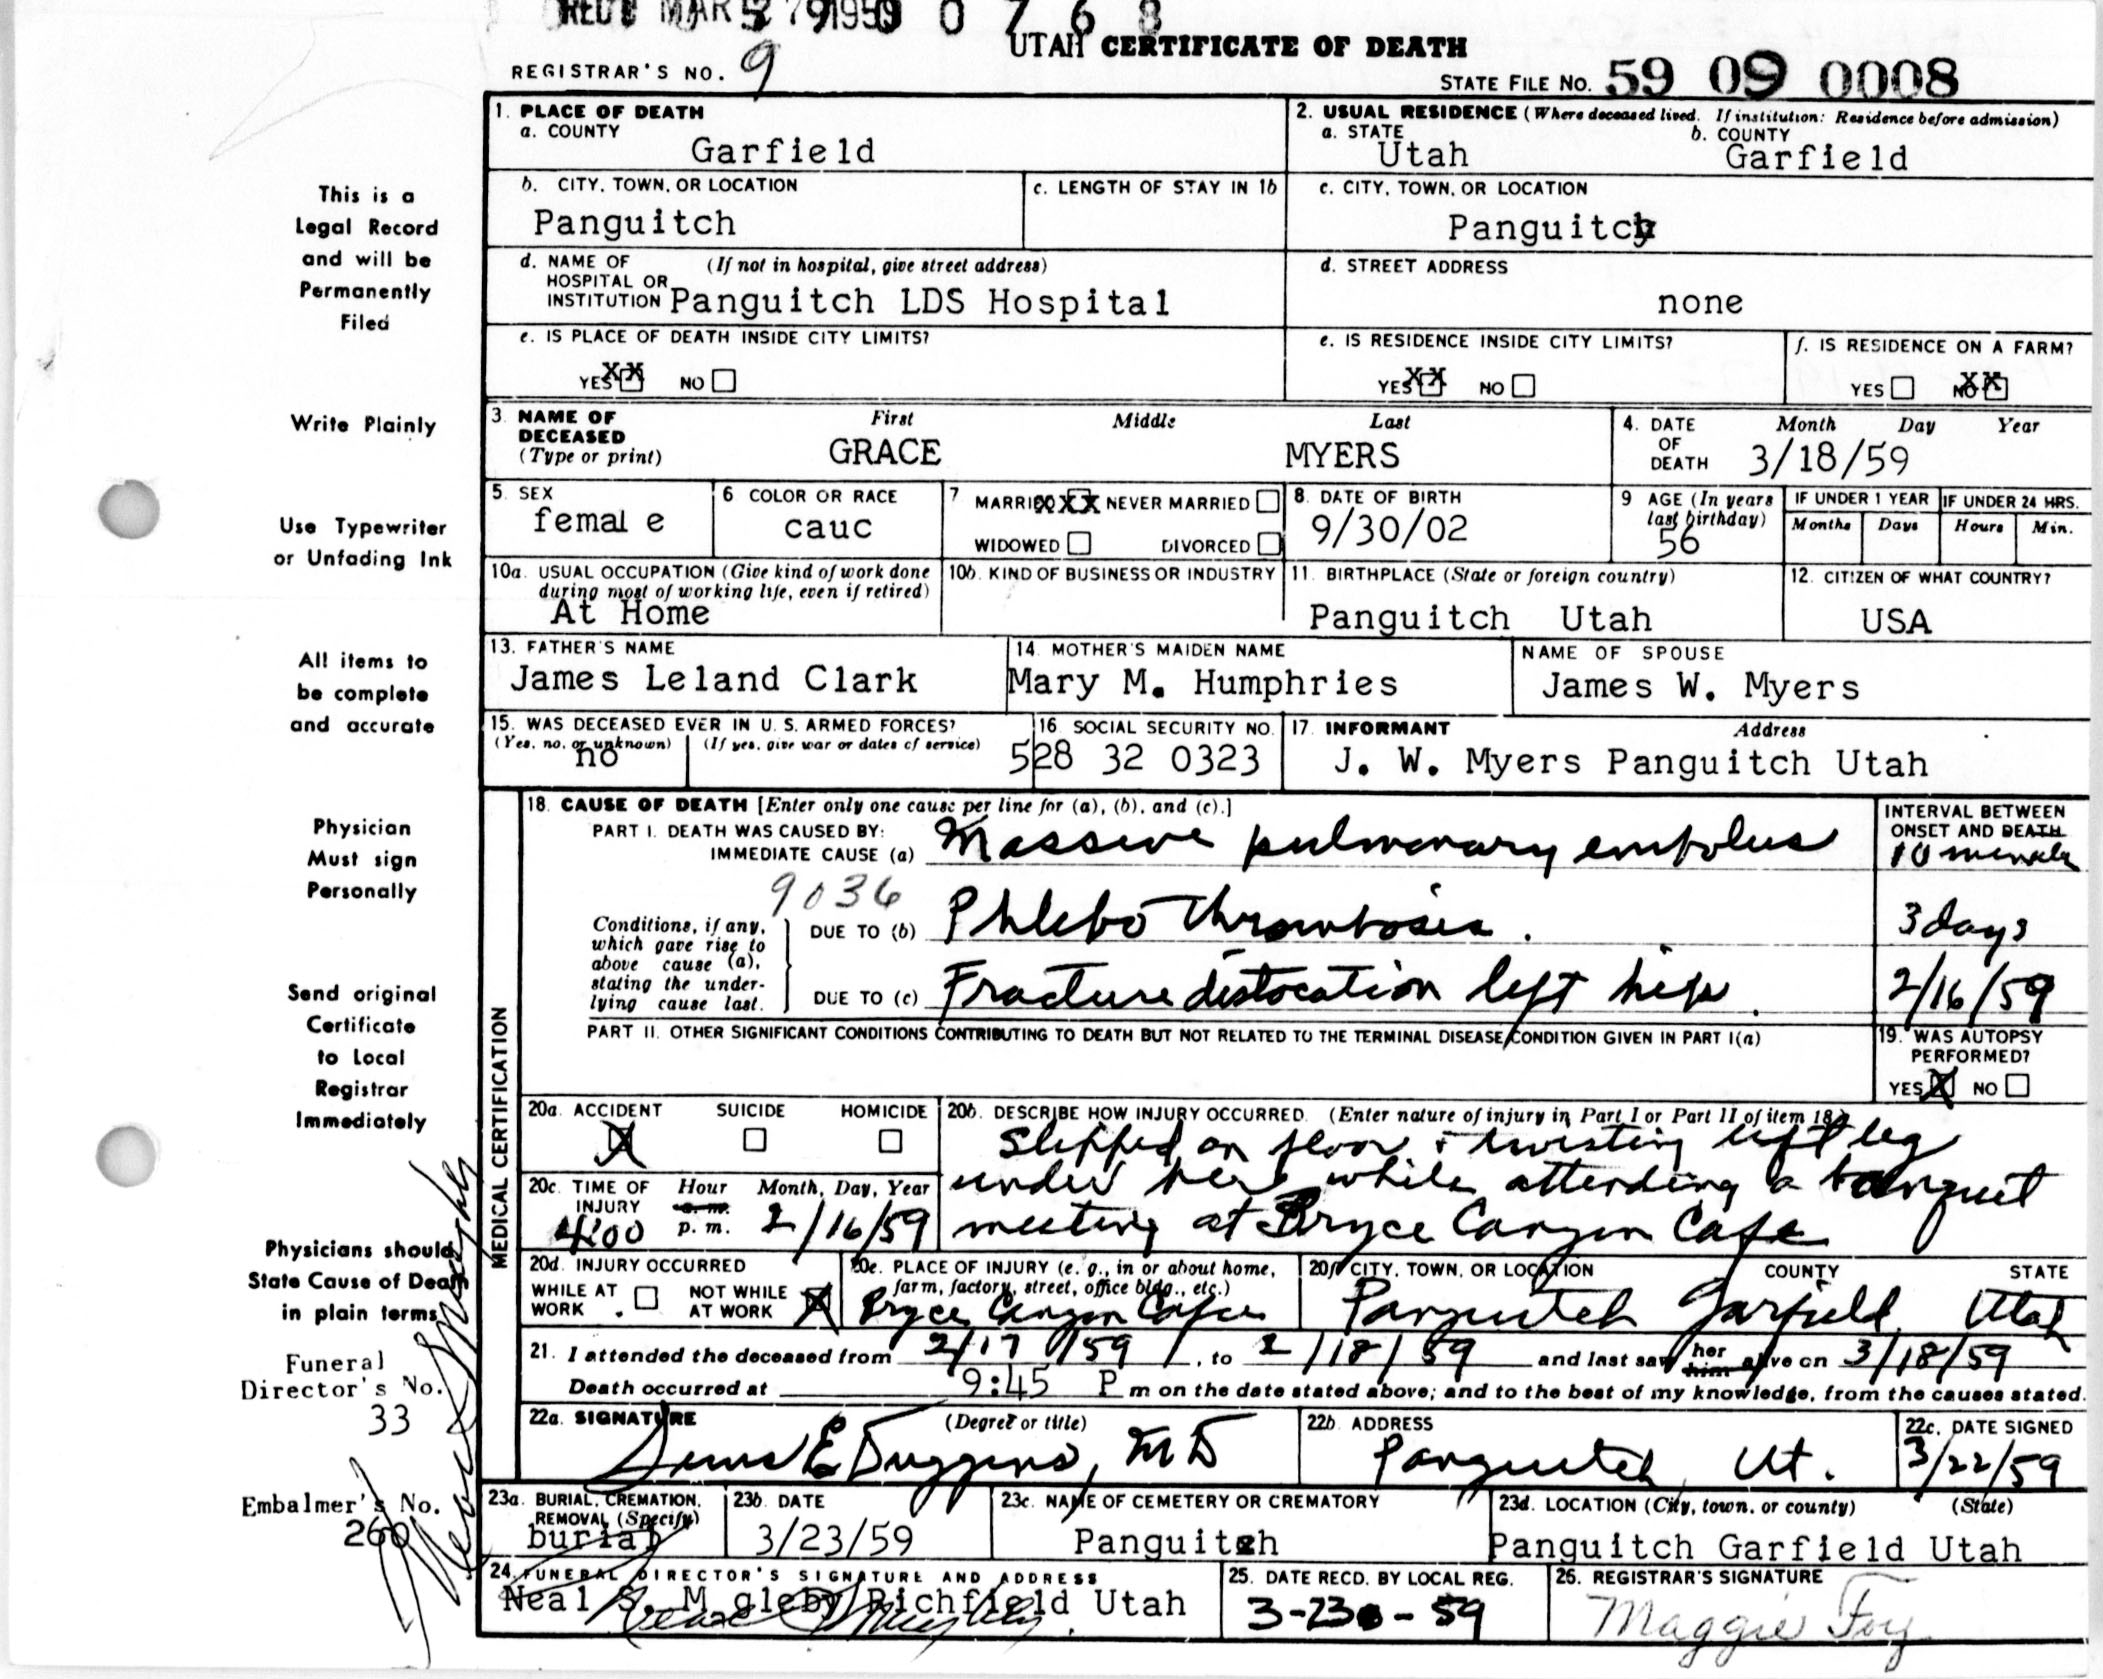 REC'D MAR 1959 0 7 6 8
UTAH CERTIFICATE OF DEATH
REGISTRAR'S NO. 9
STATE FILE NO. 59 09 0008
1. PLACE OF DEATH
a. COUNTY
Garfield
2. USUAL RESIDENCE (Where deceased lived. If institution: Residence before admission)
a. STATE b. COUNTY
Utah Garfield
b. CITY, TOWN, OR LOCATION
Panguitch
c. LENGTH OF STAY IN 1b
c. CITY, TOWN, OR LOCATION
Panguitch
d. NAME OF (If not in hospital, give street address)
HOSPITAL OR
INSTITUTION Panguitch LDS Hospital
d. STREET ADDRESS
none
e. IS PLACE OF DEATH INSIDE CITY LIMITS?
YES XX NO
e. IS RESIDENCE INSIDE CITY LIMITS?
YES XX NO
f. IS RESIDENCE ON A FARM?
YES NO XX
3. NAME OF DECEASED (Type or print)
First Middle Last
GRACE MYERS
4. DATE OF DEATH
Month Day Year
3/18/59
5. SEX
female
6 COLOR OR RACE
cauc
7 MARRIED XXX NEVER MARRIED
WIDOWED DIVORCED
8. DATE OF BIRTH
9/30/02
9 AGE (In years last birthday)
56
IF UNDER 1 YEAR IF UNDER 24 HRS.
Months Days Hours Min.
10a. USUAL OCCUPATION (Give kind of work done
during most of working life, even if retired)
At Home
10b. KIND OF BUSINESS OR INDUSTRY
11. BIRTHPLACE (State or foreign country)
Panguitch Utah
12. CITIZEN OF WHAT COUNTRY?
USA
13. FATHER'S NAME
James Leland Clark
14. MOTHER'S MAIDEN NAME
Mary M. Humphries
NAME OF SPOUSE
James W. Myers
15. WAS DECEASED EVER IN U. S. ARMED FORCES?
(Yes, no, or unknown) (If yes, give war or dates of service)
no
16. SOCIAL SECURITY NO.
528 32 0323
17. INFORMANT Address
J. W. Myers Panguitch Utah
MEDICAL CERTIFICATION
18. CAUSE OF DEATH [Enter only one cause per line for (a), (b), and (c).]
PART I. DEATH WAS CAUSED BY:
IMMEDIATE CAUSE (a) Massive pulmonary embolus
INTERVAL BETWEEN
ONSET AND DEATH
10 minute
9036
Conditions, if any,
which gave rise to
above cause (a),
stating the under-
lying cause last.
DUE TO (b) Phlebo Thrombosis.
3 days
DUE TO (c) Fracture dislocation left hip.
2/16/59
PART II. OTHER SIGNIFICANT CONDITIONS CONTRIBUTING TO DEATH BUT NOT RELATED TO THE TERMINAL DISEASE CONDITION GIVEN IN PART I(a)
19. WAS AUTOPSY
PERFORMED?
YES X NO
20a. ACCIDENT SUICIDE HOMICIDE
X
20b. DESCRIBE HOW INJURY OCCURRED. (Enter nature of injury in Part I or Part II of item 18.)
Slipped on floor & twisting left leg
under her while attending a banquet
meeting at Bryce Canyon Cafe
20c. TIME OF INJURY
Hour Month, Day, Year
a. m.
4:00 p. m. 2/16/59
20d. INJURY OCCURRED
WHILE AT WORK NOT WHILE AT WORK X
20e. PLACE OF INJURY (e. g., in or about home,
farm, factory, street, office bldg., etc.)
Bryce Canyon Cafe
20f. CITY, TOWN, OR LOCATION COUNTY STATE
Panguitch Garfield Utah
21. I attended the deceased from 2/17/59, to 2/18/59 and last saw her him alive on 3/18/59
Death occurred at 9:45 P m on the date stated above; and to the best of my knowledge, from the causes stated.
22a. SIGNATURE (Degree or title)
Sims E Duggins, MD
22b. ADDRESS
Panguitch, Ut.
22c. DATE SIGNED
3/22/59
23a. BURIAL, CREMATION,
REMOVAL (Specify)
burial
23b. DATE
3/23/59
23c. NAME OF CEMETERY OR CREMATORY
Panguitch
23d. LOCATION (City, town, or county) (State)
Panguitch Garfield Utah
24. FUNERAL DIRECTOR'S SIGNATURE AND ADDRESS
Neal S. Magleby Richfield Utah
25. DATE RECD. BY LOCAL REG.
3-23-59
26. REGISTRAR'S SIGNATURE
Maggie Foy
This is a
Legal Record
and will be
Permanently
Filed
Write Plainly
Use Typewriter
or Unfading Ink
All items to
be complete
and accurate
Physician
Must sign
Personally
Send original
Certificate
to Local
Registrar
Immediately
Physicians should
State Cause of Death
in plain terms
Funeral
Director's No.
33
Embalmer's No.
260
Neal S Magleby